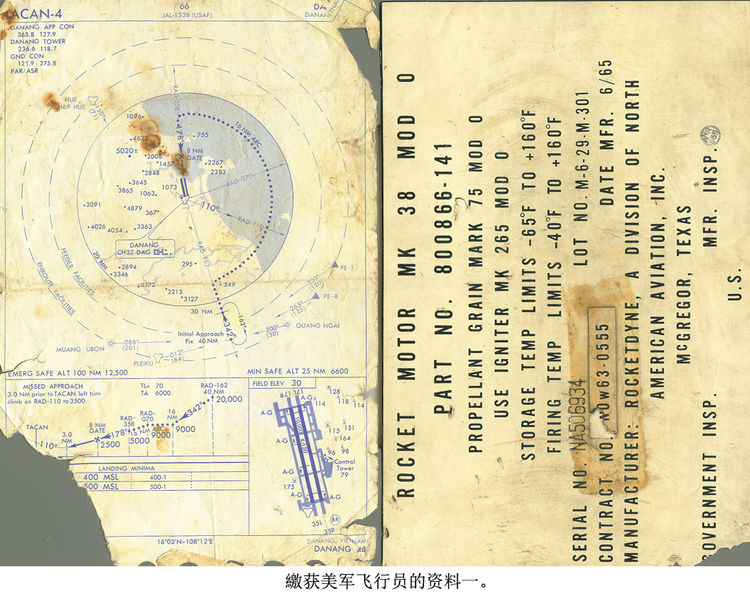 TACAN-4
66
JAL-1538 (USAF)
DANANG APP CON
363.8 127.9
DANANG TOWER
236.6 118.7
GND CON
121.9 275.8
PAR/ASR
HUE
1096
4637
5020±
2008
1457
2848
3645
3865
1063
1073
3091
4879
367
4026
4054
3363
755
2267
2283
178°
8 NM
GATE
16 NM ARC
RAD-070
110°
RAD-110
DANANG
CH 37-DAG
20 NM
2894
3346
2172
2215
3127
295
549
30 NM
162°
342°
PE-1
PE-8
300°
(30)
QUANG NGAI
FEEDER FACILITIES
ENROUTE FACILITIES
Initial Approach
Fix 40 NM
088°
(201)
MUANG UBON
PLEIKU
012°
(84)
EMERG SAFE ALT 100 NM 12,500
MIN SAFE ALT 25 NM 6600
MISSED APPROACH
3.0 NM prior to TACAN left turn
climb on RAD-110 to 3500.
TLv 70
TA 6000
RAD-162
40 NM
20,000
342°
TACAN
3.0
NM
8 NM
GATE
RAD-
358
RAD-
070
16
NM
110°
178°
2500
5000
5000
9000
9000
LANDING MINIMA
400 MSL
400-1
500 MSL
500-1
FIELD ELEV 30
A-G
128
118
114
114
115
151
164
96
98
Control
Tower
79
175
35L
35R
BR
16°03'N-108°12'E
DANANG, VIETNAM
DANANG AB
ROCKET MOTOR MK 38 MOD 0
PART NO. 800866-141
PROPELLANT GRAIN MARK 75 MOD 0
USE IGNITER MK 265 MOD 0
STORAGE TEMP LIMITS -65°F TO +160°F
FIRING TEMP LIMITS -40°F TO +160°F
SERIAL NO. NA506934 LOT NO. M-6-29-M-301
CONTRACT NO. NOW63-0555 DATE MFR. 6/65
MANUFACTURER: ROCKETDYNE, A DIVISION OF NORTH
AMERICAN AVIATION, INC.
MCGREGOR, TEXAS
GOVERNMENT INSP. MFR. INSP.
U.S.
缴获美军飞行员的资料一。